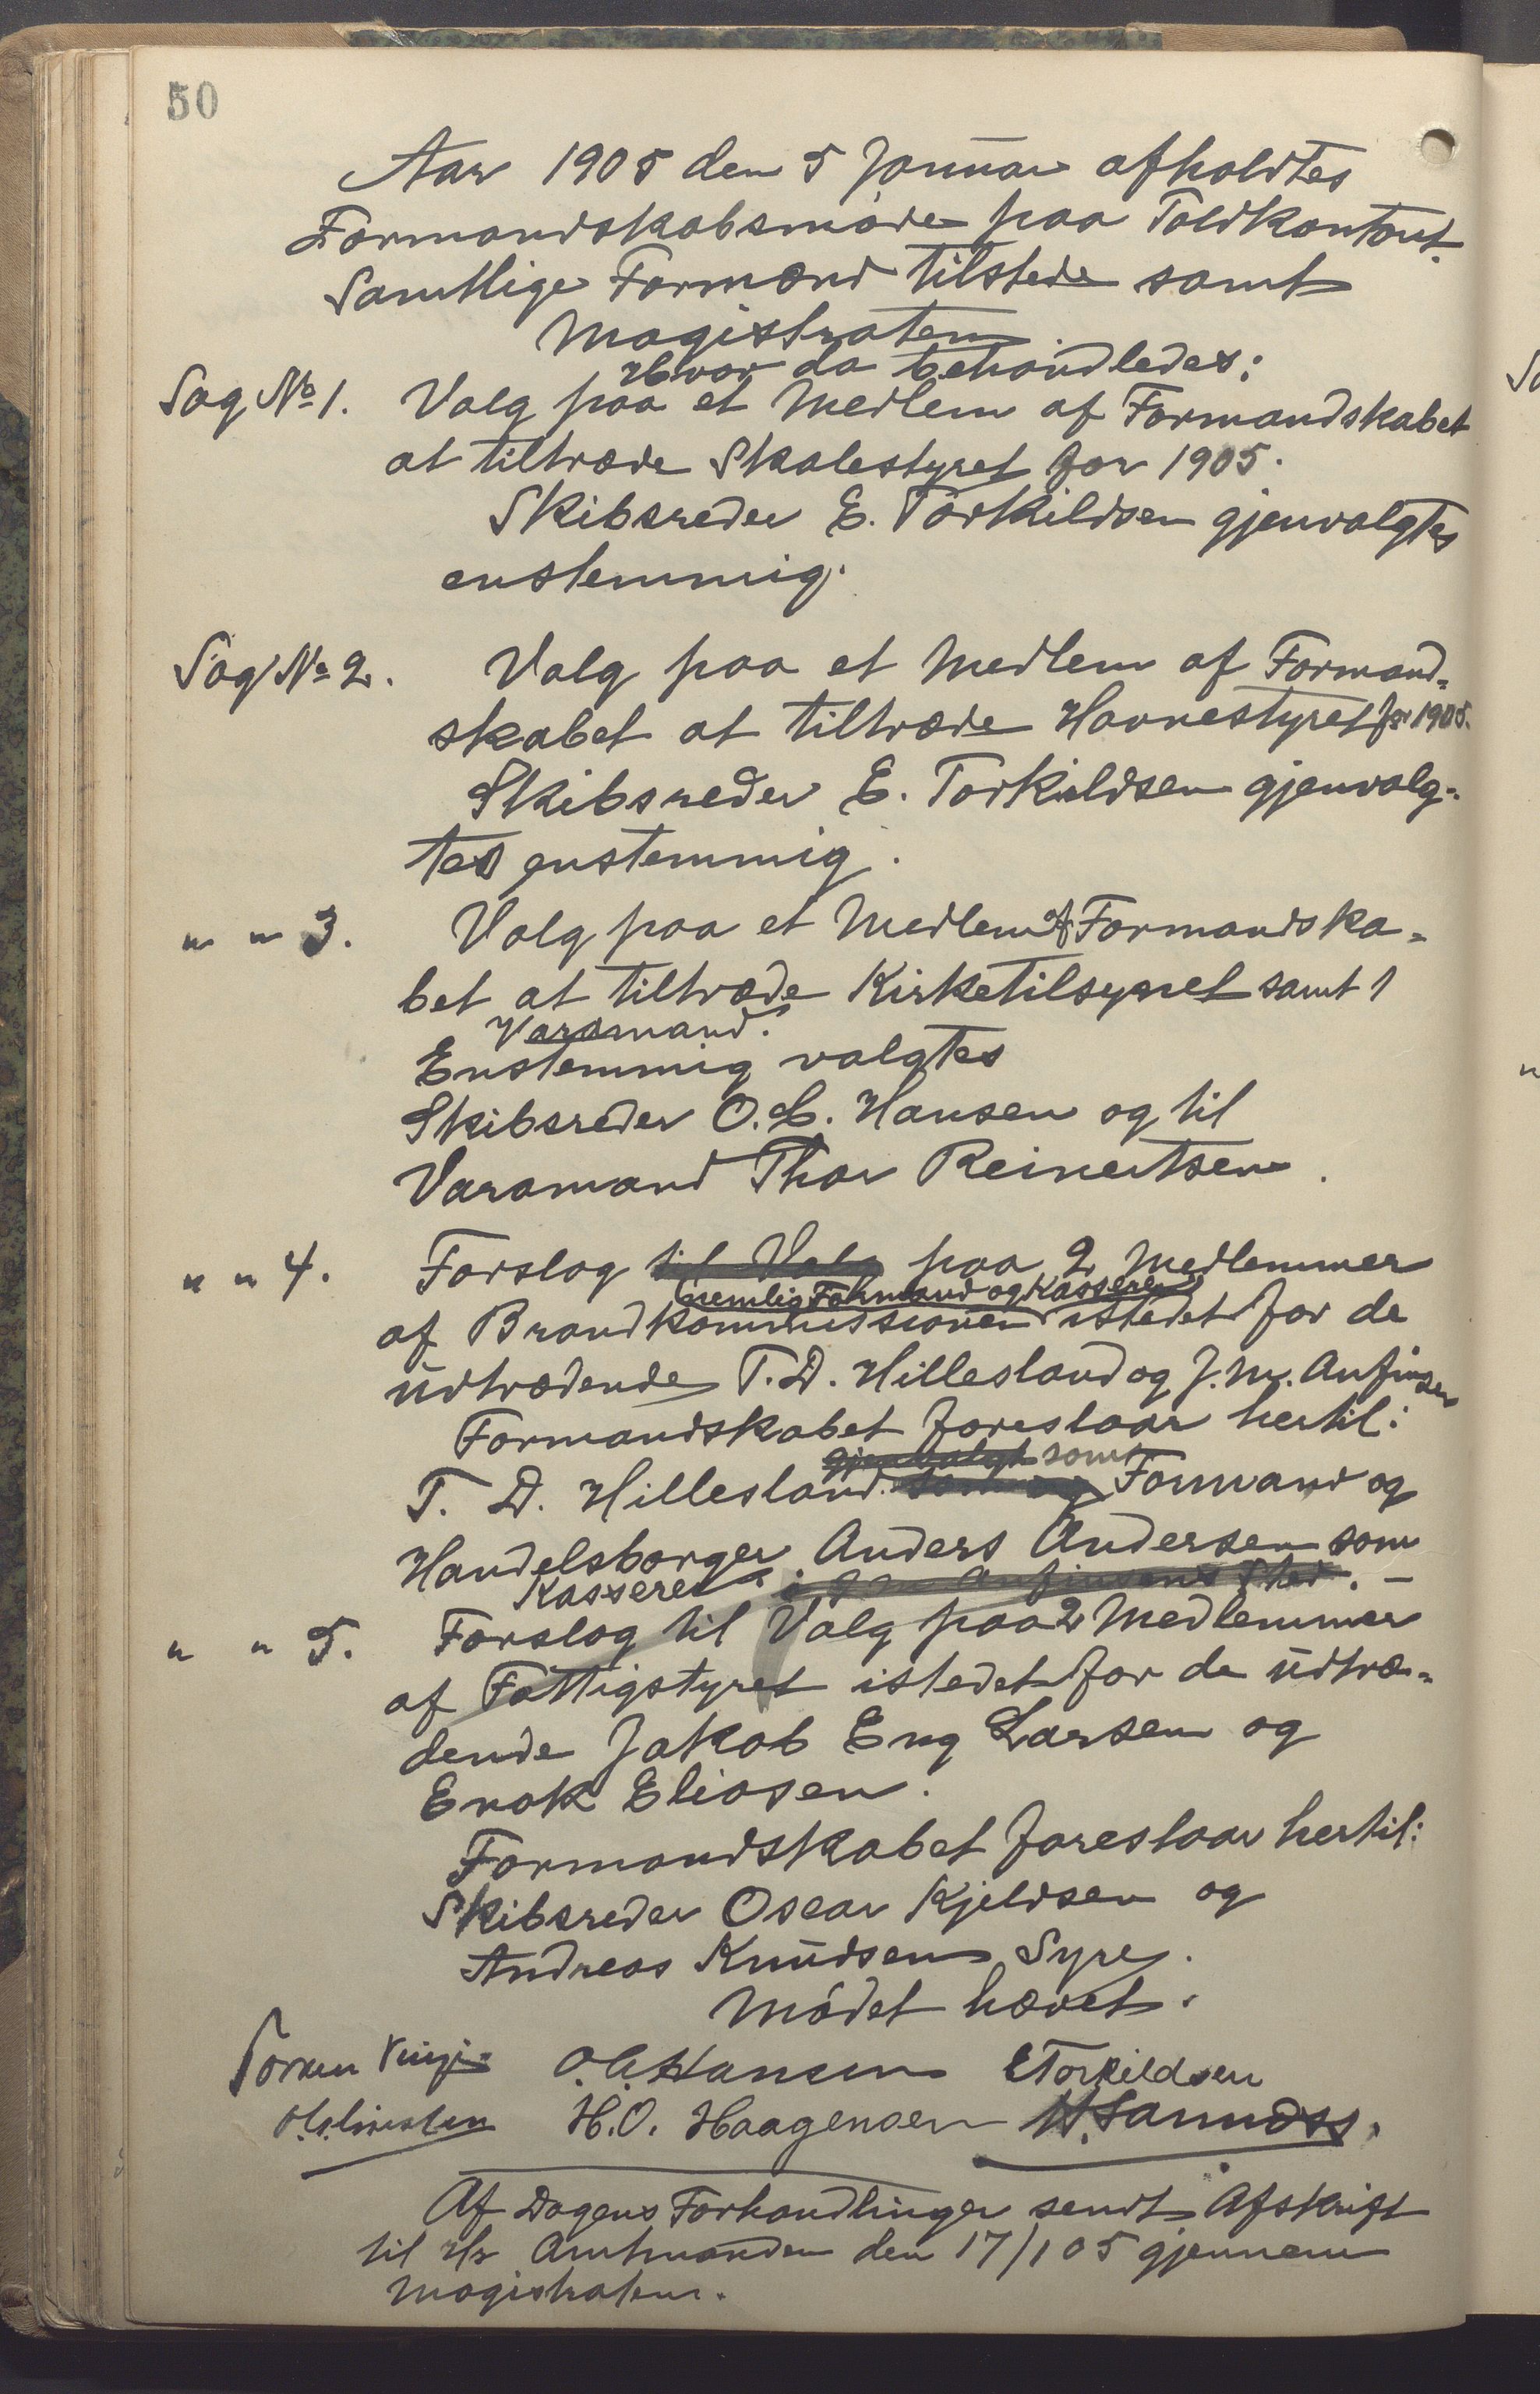 50
Aar 1905 den 5 Januar afholdtes
Formandskabsmøde paa Toldkontoret.
Samtlige Formænd tilstede samt
Magistraten
Hvor da behandledes:
Sag No 1. Valg paa et Medlem af Formandskabet
at tiltræde Skolestyret for 1905.
Skibsreder E. Torkildsen gjenvalgtes
enstemmig.
Sag No 2. Valg paa et Medlem af Formand-
skabet at tiltræde Havnestyret for 1905.
Skibsreder E. Torkildsen gjenvalg-
tes enstemmig.
" " 3. Valg paa et Medlem af Formandska-
bet at tiltræde Kirketilsynet samt 1
Varamand.
Enstemmig valgtes
Skibsreder O. C. Hansen og til
Varamand Thor Reinertsen.
" " 4. Forslag til Valg paa 2 Medlemmer
(nemlig Formand og Kasserer)
af Brandkommissionen istedet for de
udtrædende T. D. Hillesland og J. M. Anfinsen
Formandskabet foreslaar hertil:
gjenvalgt som
T. D. Hillesland. Formand og
Handelsborger Anders Andersen som
Kasserer i J M Anfinsens Sted. –
" " 5. Forslag til Valg paa 2 Medlemmer
af Fattigstyret istedet for de udtræ-
dende Jakob Eng Larsen og
Enok Eliasen.
Formandskabet foreslaar hertil:
Skibsreder Oscar Kjeldsen og
Andreas Knudsen Syre.
Mødet hævet.
O. C. Hansen E Torkildsen
H. O. Haagensen
Af Dagens Forhandlinger sendt Afskrift
til Hr Amtmanden den 17/1 05 gjennem
Magistraten.